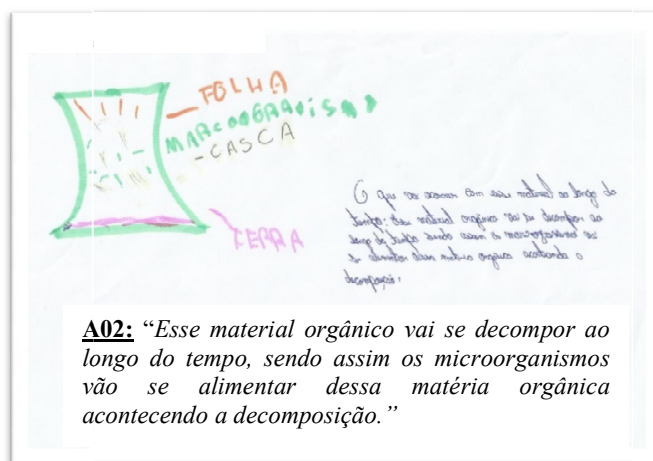 FOLHA
MARCOOGRAVISAO
-CASCA
TERRA
O que vai acontecer com esse material ao longo do
tempo: Esse material orgânico vai se decompor ao
longo do tempo sendo assim o microorganismo vai
se alimentar dessa matéria orgânica acontecendo a
decomposição.
A02: “Esse material orgânico vai se decompor ao
longo do tempo, sendo assim os microorganismos
vão se alimentar dessa matéria orgânica
acontecendo a decomposição.”